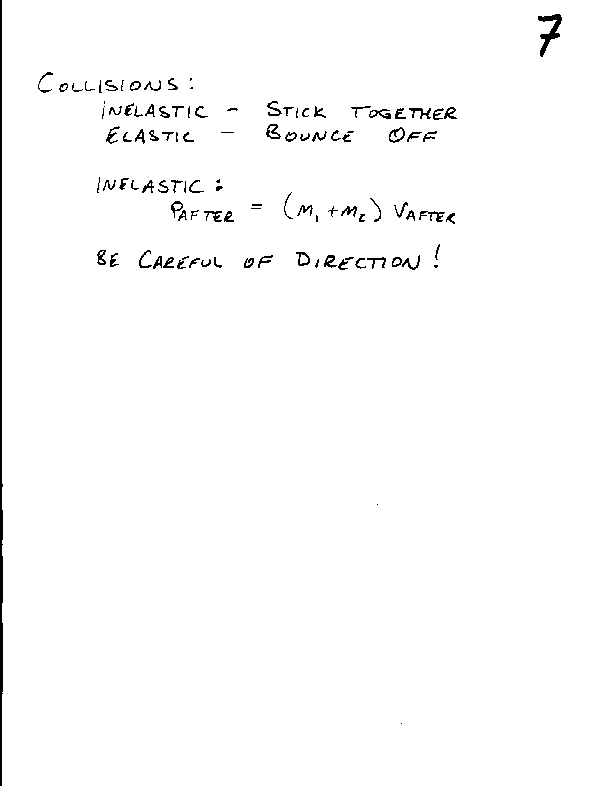 7
COLLISIONS:
INELASTIC - STICK TOGETHER
ELASTIC - BOUNCE OFF
INELASTIC:
PAFTER = (M1 + M2) VAFTER
BE CAREFUL OF DIRECTION!